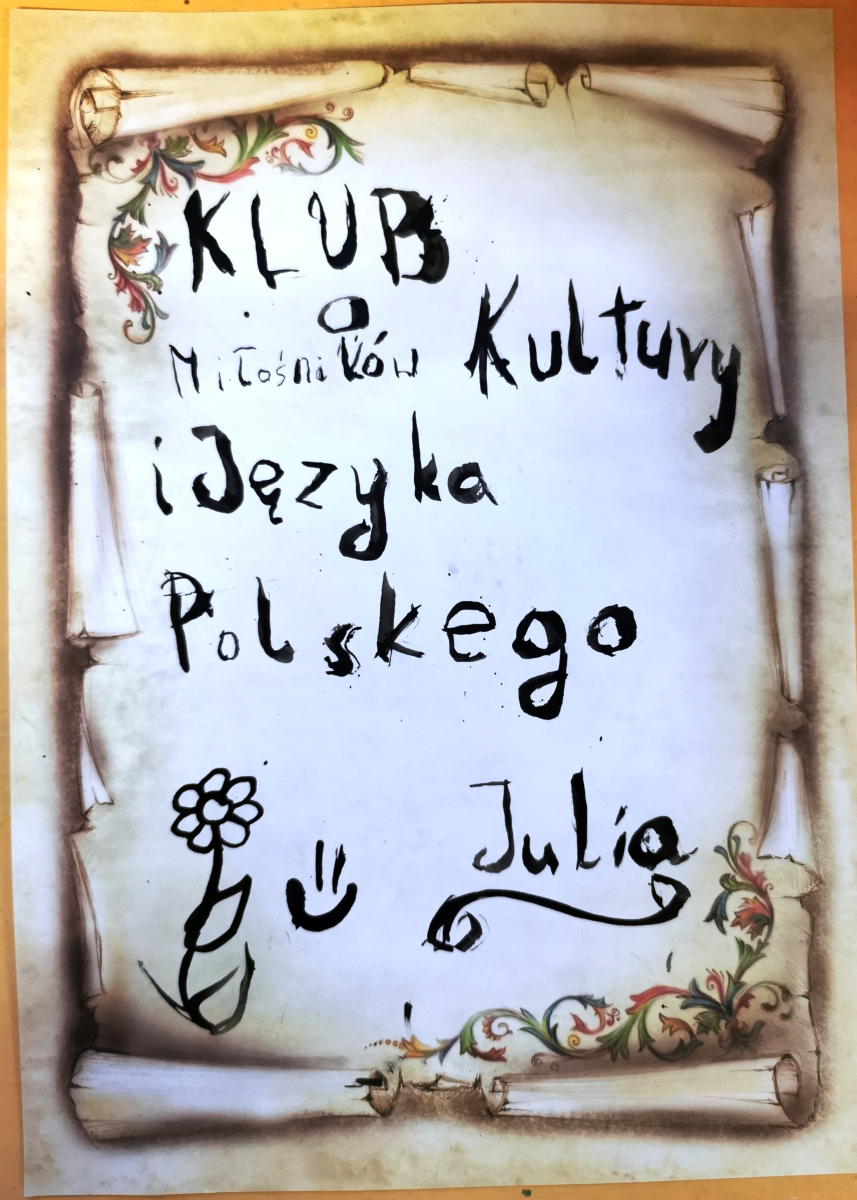 KLUB
Miłośników Kultury
i Języka
Polskego
Julia